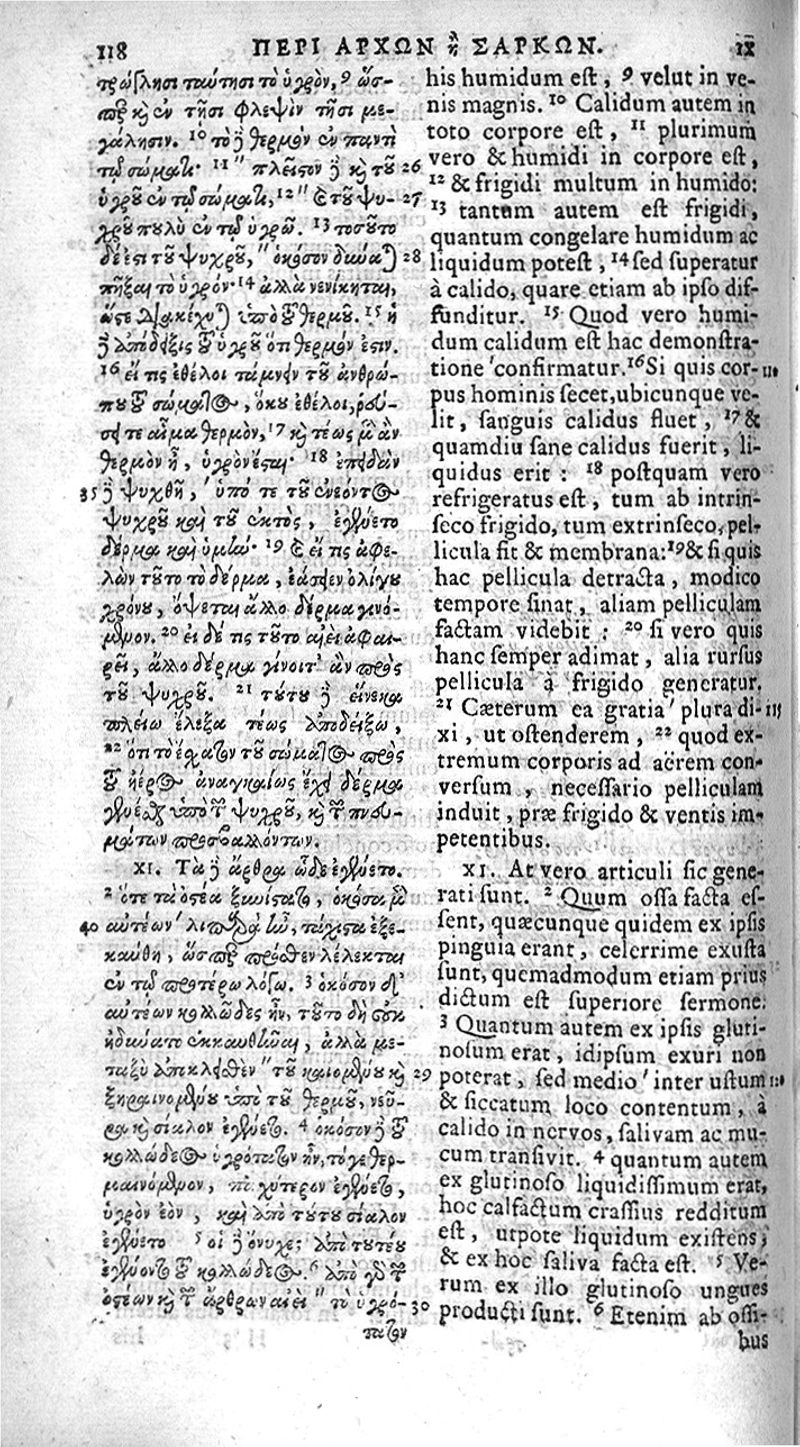 118 ΠΕΡΙ ΑΡΧΩΝ ϗ̀ ΣΑΡΚΩΝ. IX
τρώγλῃσι ταύτῃσι τὸ ὑγρὸν, 9 ὥσ-
περ ϗ̀ ἐν τῇσι φλεψὶν τῇσι με-
γάλῃσιν. 10 τὸ ἢ θερμὸν ἐν παντὶ
τῷ σώματι· 11 " πλεῖστον ἢ ϗ̀ τοῦ 26
ὑγροῦ ἐν τῷ σώματι, 12 " ϗ̀ τοῦ ψυ- 27
χροῦ πολὺ ἐν τῷ ὑγρῷ. 13 τοσοῦτο
δέ ἐστι τοῦ ψυχροῦ, " ὁκόσον δύναται 28
πῆξαι τὸ ὑγρόν· 14 ἀλλὰ νενίκηται,
ὥστε διακέχυται ὑπὸ τοῦ θερμοῦ. 15 ἡ
ἢ ἀπόδειξις τοῦ ὑγροῦ ὅτι θερμόν ἐστιν.
16 εἴ τις ἐθέλοι τάμνειν τοῦ ἀνθρώ-
που τοῦ σώματος, ὅκου ἐθέλοι, ῥεύ-
σεται αἷμα θερμὸν, 17 ϗ̀ τέως μὲν ἂν
θερμὸν ᾖ, ὑγρὸν ἔσται· 18 ἐπειδὰν
35 ἢ ψυχθῇ, ' ὑπό τε τοῦ ἐνεόντος
ψυχροῦ καὶ τοῦ ἐκτὸς, ἐγένετο
δέρμα καὶ ὑμήν· 19 ϗ̀ εἴ τις ἀφε-
λὼν τοῦτο τὸ δέρμα, ἐάσειεν ὀλίγου
χρόνου, ὄψεται ἄλλο δέρμα γινό-
μενον. 20 εἰ δέ τις τοῦτο αἰεὶ ἀφαι-
ρέῃ, ἄλλο δέρμα γίνοιτ' ἂν πρὸς
τοῦ ψυχροῦ. 21 τούτου ἢ εἵνεκα
πλείω ἔλεξα τέως ἀποδείξω,
22 ὅτι τὸ ἔσχατον τοῦ σώματος πρὸς
τοῦ ἠέρος ἀναγκαίως ἔχει δέρμα
γενέσθαι ὑπὸ τοῦ ψυχροῦ, ϗ̀ τῶν πνευ-
μάτων προσβαλλόντων.
XI. Τὰ ἢ ἄρθρα ὧδε ἐγένετο.
2 ὅτε τὰ ὀστέα ξυνίστατο, ὁκόσα μὲν
40 αὐτέων ' λιπαρὰ ἦν, τάχιστα ἐξε-
καύθη, ὥσπερ πρόσθεν λέλεκται
ἐν τῷ προτέρῳ λόγῳ. 3 ὁκόσον δ'
αὐτέων κολλῶδες ἦν, τοῦτο δὴ οὐκ
ἠδύνατο ἐκκαυθῆναι, ἀλλὰ με-
ταξὺ ἀπικλειφθὲν " τοῦ καιομένου ϗ̀ 29
ξηραινομένου ὑπὸ τοῦ θερμοῦ, νεῦ-
ρα ϗ̀ σίαλον ἐγένετο. 4 ὁκόσον ἢ τοῦ
κολλώδεος ὑγρότατον ἦν, τό γε θερ-
μαινόμενον, παχύτερον ἐγένετο,
ὑγρὸν ἐὸν, καὶ ἀπὸ τούτου σίαλον
ἐγένετο 5 οἱ ἢ ὄνυχες ἀπὸ τουτέου
ἐγένοντο τοῦ κολλώδεος. 6 ἀπὸ γὰρ τῶν
ὀστέων ϗ̀ τῶν ἄρθρων αἰεὶ " τὸ ὑγρό- 30
τατον
his humidum est, 9 velut in ve-
nis magnis. 10 Calidum autem in
toto corpore est, 11 plurimum
vero & humidi in corpore est,
12 & frigidi multum in humido:
13 tantum autem est frigidi,
quantum congelare humidum ac
liquidum potest, 14 sed superatur
à calido, quare etiam ab ipso dif-
funditur. 15 Quod vero humi-
dum calidum est hac demonstra-
tione ' confirmatur. 16 Si quis cor-
pus hominis secet, ubicunque ve-
lit, sanguis calidus fluet, 17 &
quamdiu sane calidus fuerit, li-
quidus erit: 18 postquam vero
refrigeratus est, tum ab intrin-
seco frigido, tum extrinseco, pel-
licula fit & membrana: 19 & si quis
hac pellicula detracta, modico
tempore sinat, aliam pelliculam
factam videbit: 20 si vero quis
hanc semper adimat, alia rursus
pelliculâ à frigido generatur.
21 Cæterum ea gratia ' plura di-
xi, ut ostenderem, 22 quod ex-
tremum corporis ad aërem con-
versum, necessario pelliculam
induit, præ frigido & ventis im-
petentibus.
XI. At vero articuli sic gene-
rati sunt. 2 Quum ossa facta es-
sent, quæcunque quidem ex ipsis
pinguia erant, celerrime exusta
sunt, quemadmodum etiam prius
dictum est superiore sermone:
3 Quantum autem ex ipsis gluti-
nosum erat, idipsum exuri non
poterat, sed medio ' inter ustum
& siccatum loco contentum, à
calido in nervos, salivam ac mu-
cum transivit. 4 quantum autem
ex glutinoso liquidissimum erat,
hoc calfactum crassius redditum
est, utpote liquidum existens;
& ex hoc saliva facta est. 5 Ve-
rum ex illo glutinoso ungues
producti sunt. 6 Etenim ab ossi-
bus